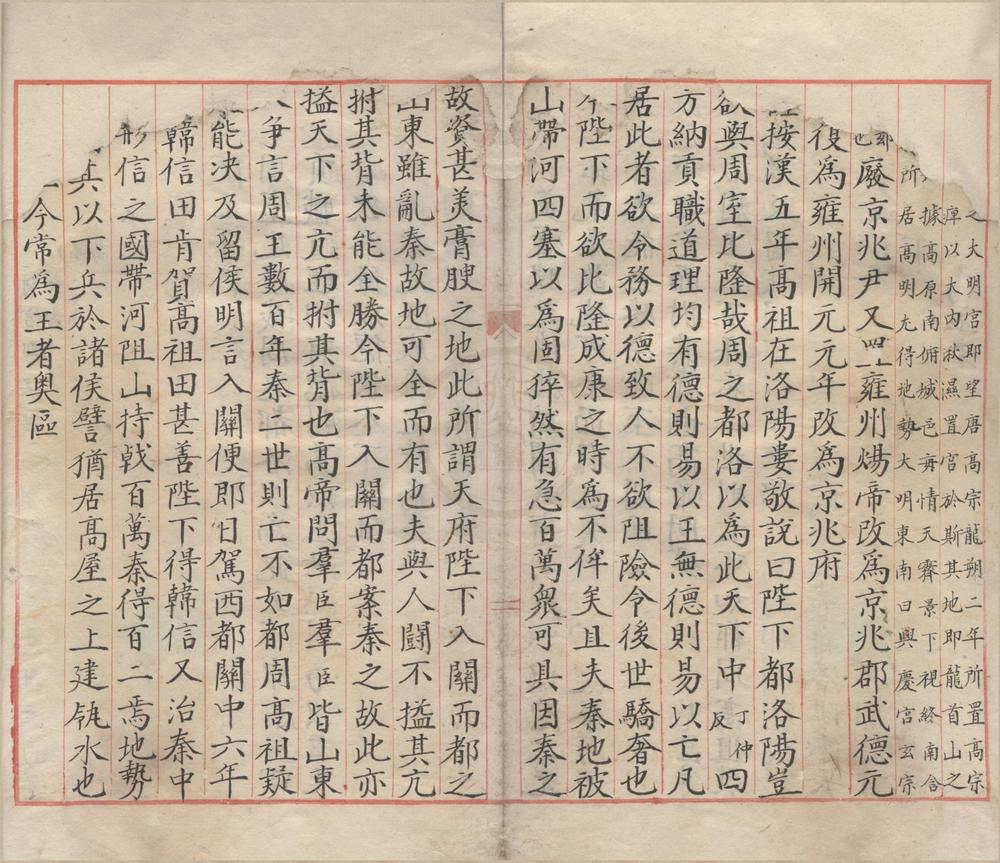 之大明宮耶望唐高宗龍朔二年所置高宗
痺以大內湫濕置宮於斯其地即龍首山之
據高原南俯城邑每情天霽景下視終南含
所居高明尤得地勢大明東南曰興慶宮玄宗
都也廢京兆尹又置雍州煬帝改為京兆郡武德元
復為雍州開元元年改為京兆府
按漢五年高祖在洛陽婁敬說曰陛下都洛陽豈
欲與周室比隆哉周之都洛以為此天下中丁仲反四
方納貢職道理均有德則易以王無德則易以亡凡
居此者欲令務以德致人不欲阻險令後世驕奢也
今陛下而欲比隆成康之時為不侔矣且夫秦地被
山帶河四塞以為固猝然有急百萬眾可具因秦之
故資甚美膏腴之地此所謂天府陛下入關而都之
山東雖亂秦故地可全而有也夫與人鬪不搤其亢
拊其背未能全勝今陛下入關而都案秦之故此亦
搤天下之亢而拊其背也高帝問羣臣羣臣皆山東
人爭言周王數百年秦二世則亡不如都周高祖疑
能决及留侯明言入關便即日駕西都關中六年
韓信田肯賀高祖田甚善陛下得韓信又治秦中
形信之國帶河阻山持戟百萬秦得百二焉地勢
其以下兵於諸侯譬猶居高屋之上建瓴水也
今常為王者奧區